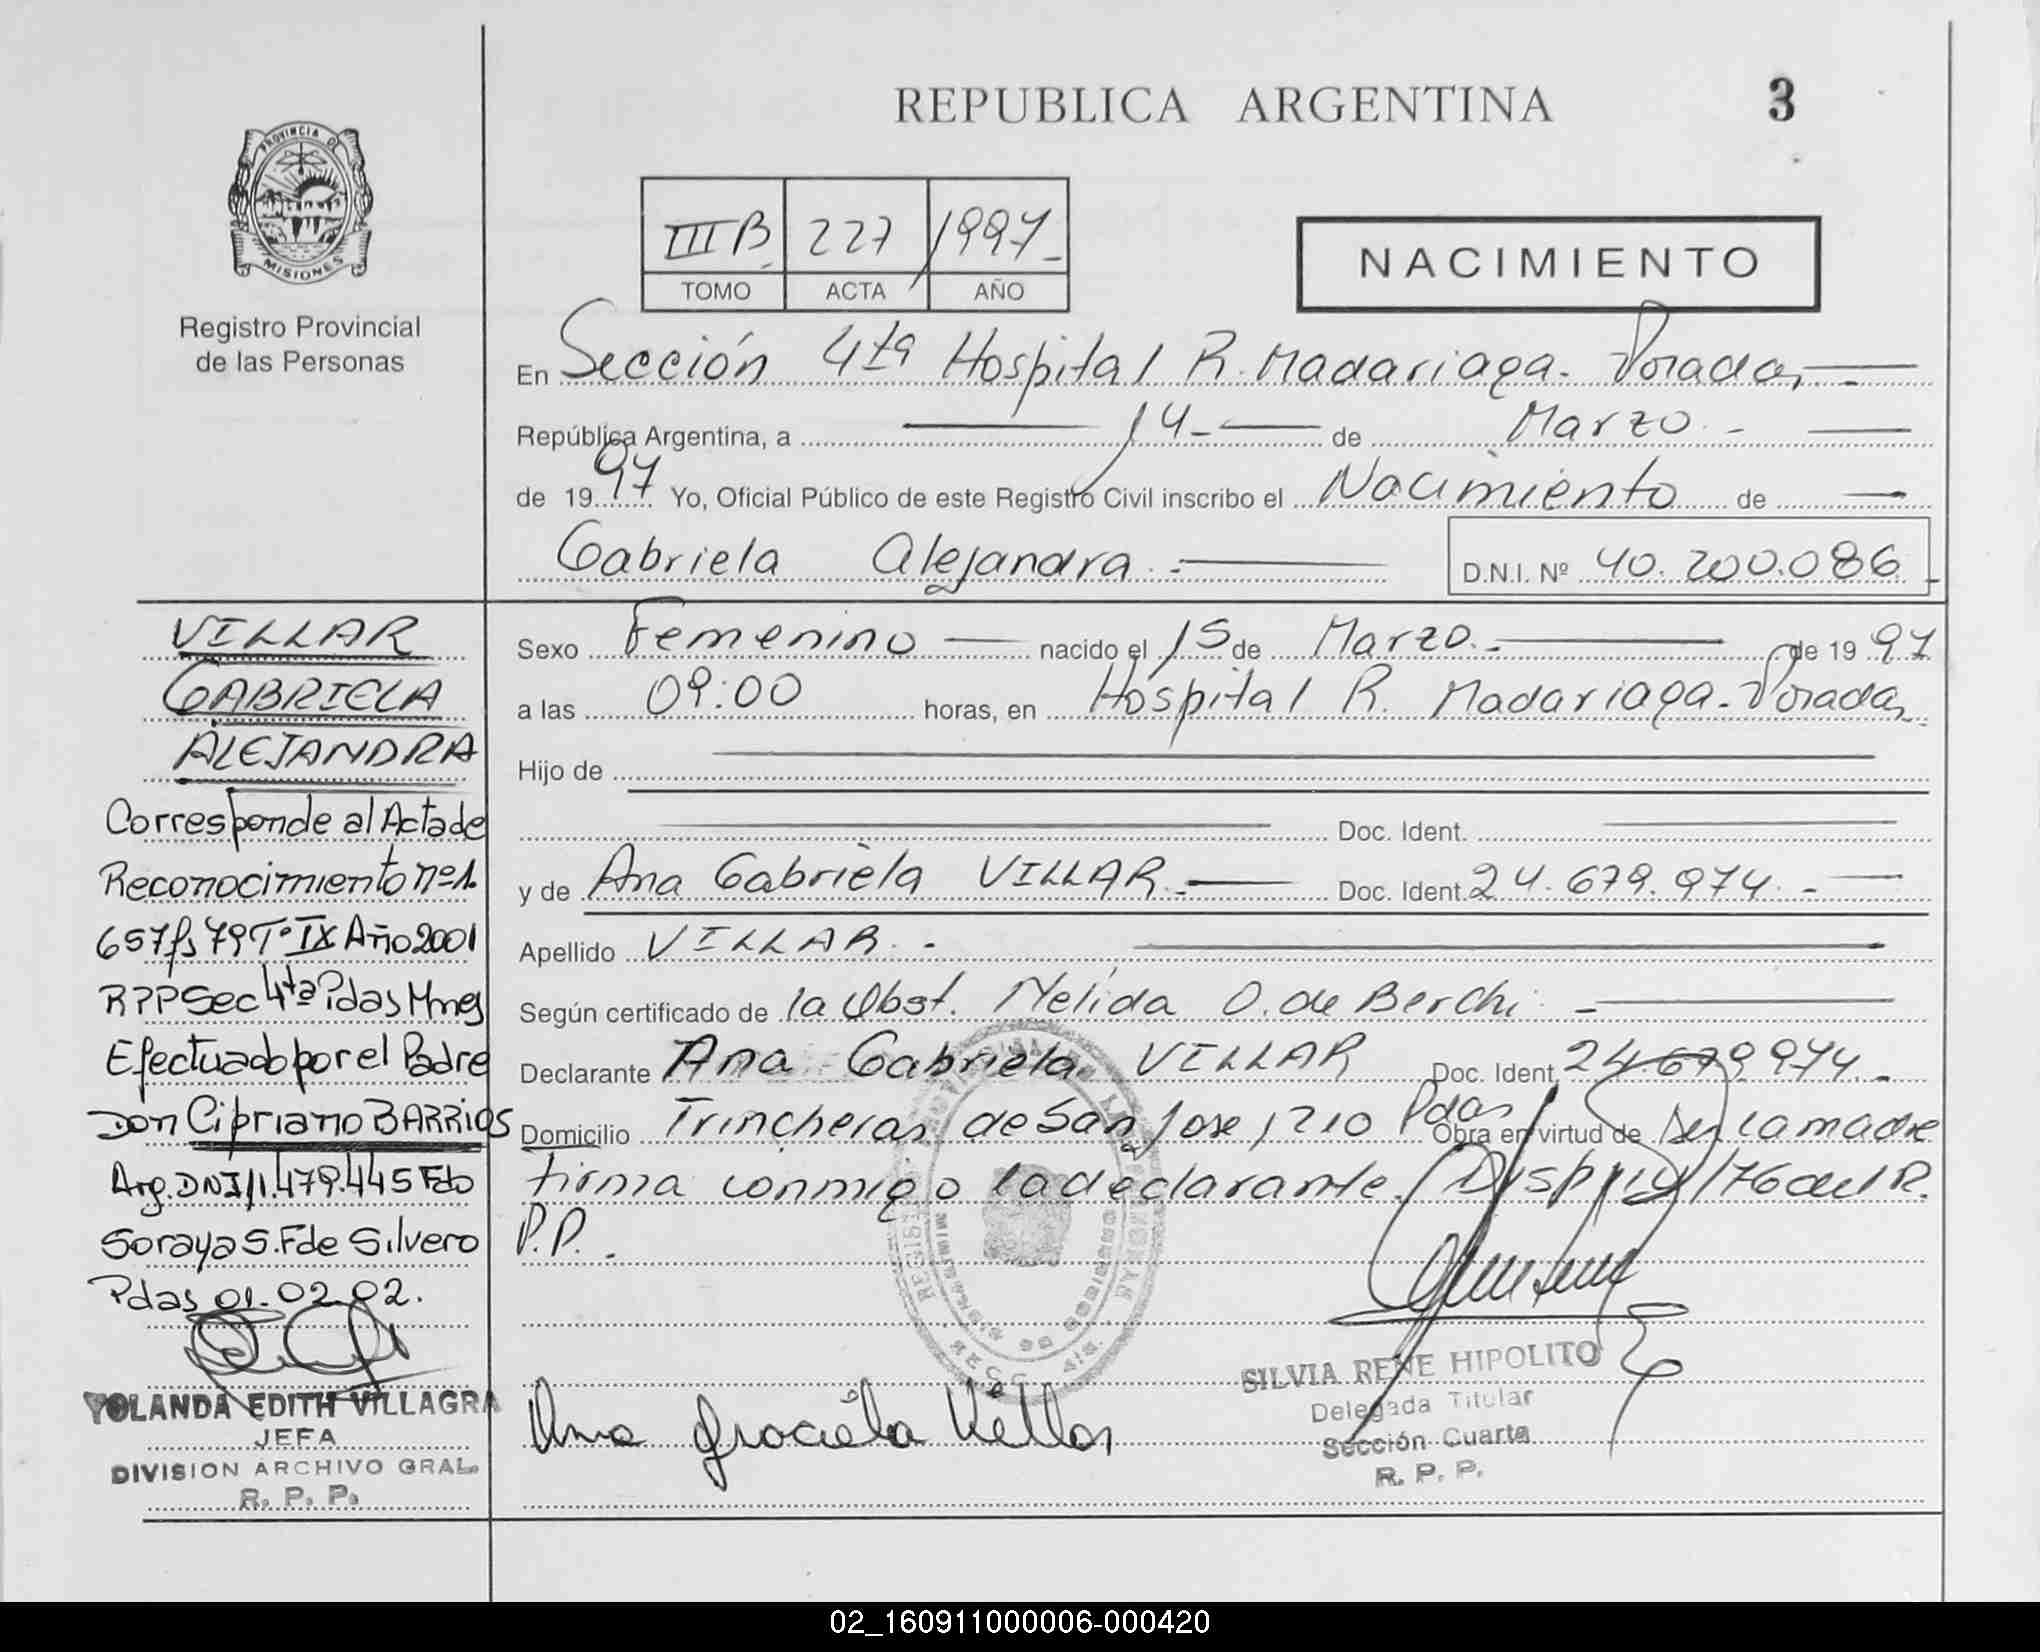 REPUBLICA ARGENTINA 3
PROVINCIA DE
MISIONES
Registro Provincial
de las Personas
III B 227 1997
TOMO ACTA AÑO
NACIMIENTO
En Sección 4ta Hospital R. Madariaga. Posadas
República Argentina, a 14 de Marzo
de 1997 Yo, Oficial Público de este Registro Civil inscribo el Nacimiento de
Gabriela Alejandra D.N.I. Nº 40.200.086
VILLAR
GABRIELA
ALEJANDRA
Corresponde al Acta de
Reconocimiento nº 1.
657 fs 79 Tº IX Año 2001
RPP Sec 4ta Pdas Mnes
Efectuado por el Padre
Don Cipriano BARRIOS
Arg. DNI 11.479.445 Fdo
Soraya S. F de Silvero
Pdas 01-02-02.
YOLANDA EDITH VILLAGRA
JEFA
DIVISION ARCHIVO GRAL.
R. P. P.
Sexo Femenino nacido el 15 de Marzo. de 1997
a las 09:00 horas, en Hospital R. Madariaga. Posadas
Hijo de
Doc. Ident.
y de Ana Gabriela VILLAR Doc. Ident. 24.679.974.
Apellido VILLAR
Según certificado de la Obst. Nelida O. de Berchi
Declarante Ana Gabriela VILLAR Doc. Ident. 24.679.974.
Domicilio Trincheras de San Jose 1210 Pdas Obra en virtud de Ser la madre
firma conmigo la declarante. Disp. /76 del R.
P.P.
Ana Graciela Villar
SILVIA RENE HIPOLITO
Delegada Titular
Sección Cuarta
R. P. P.
02_160911000006-000420